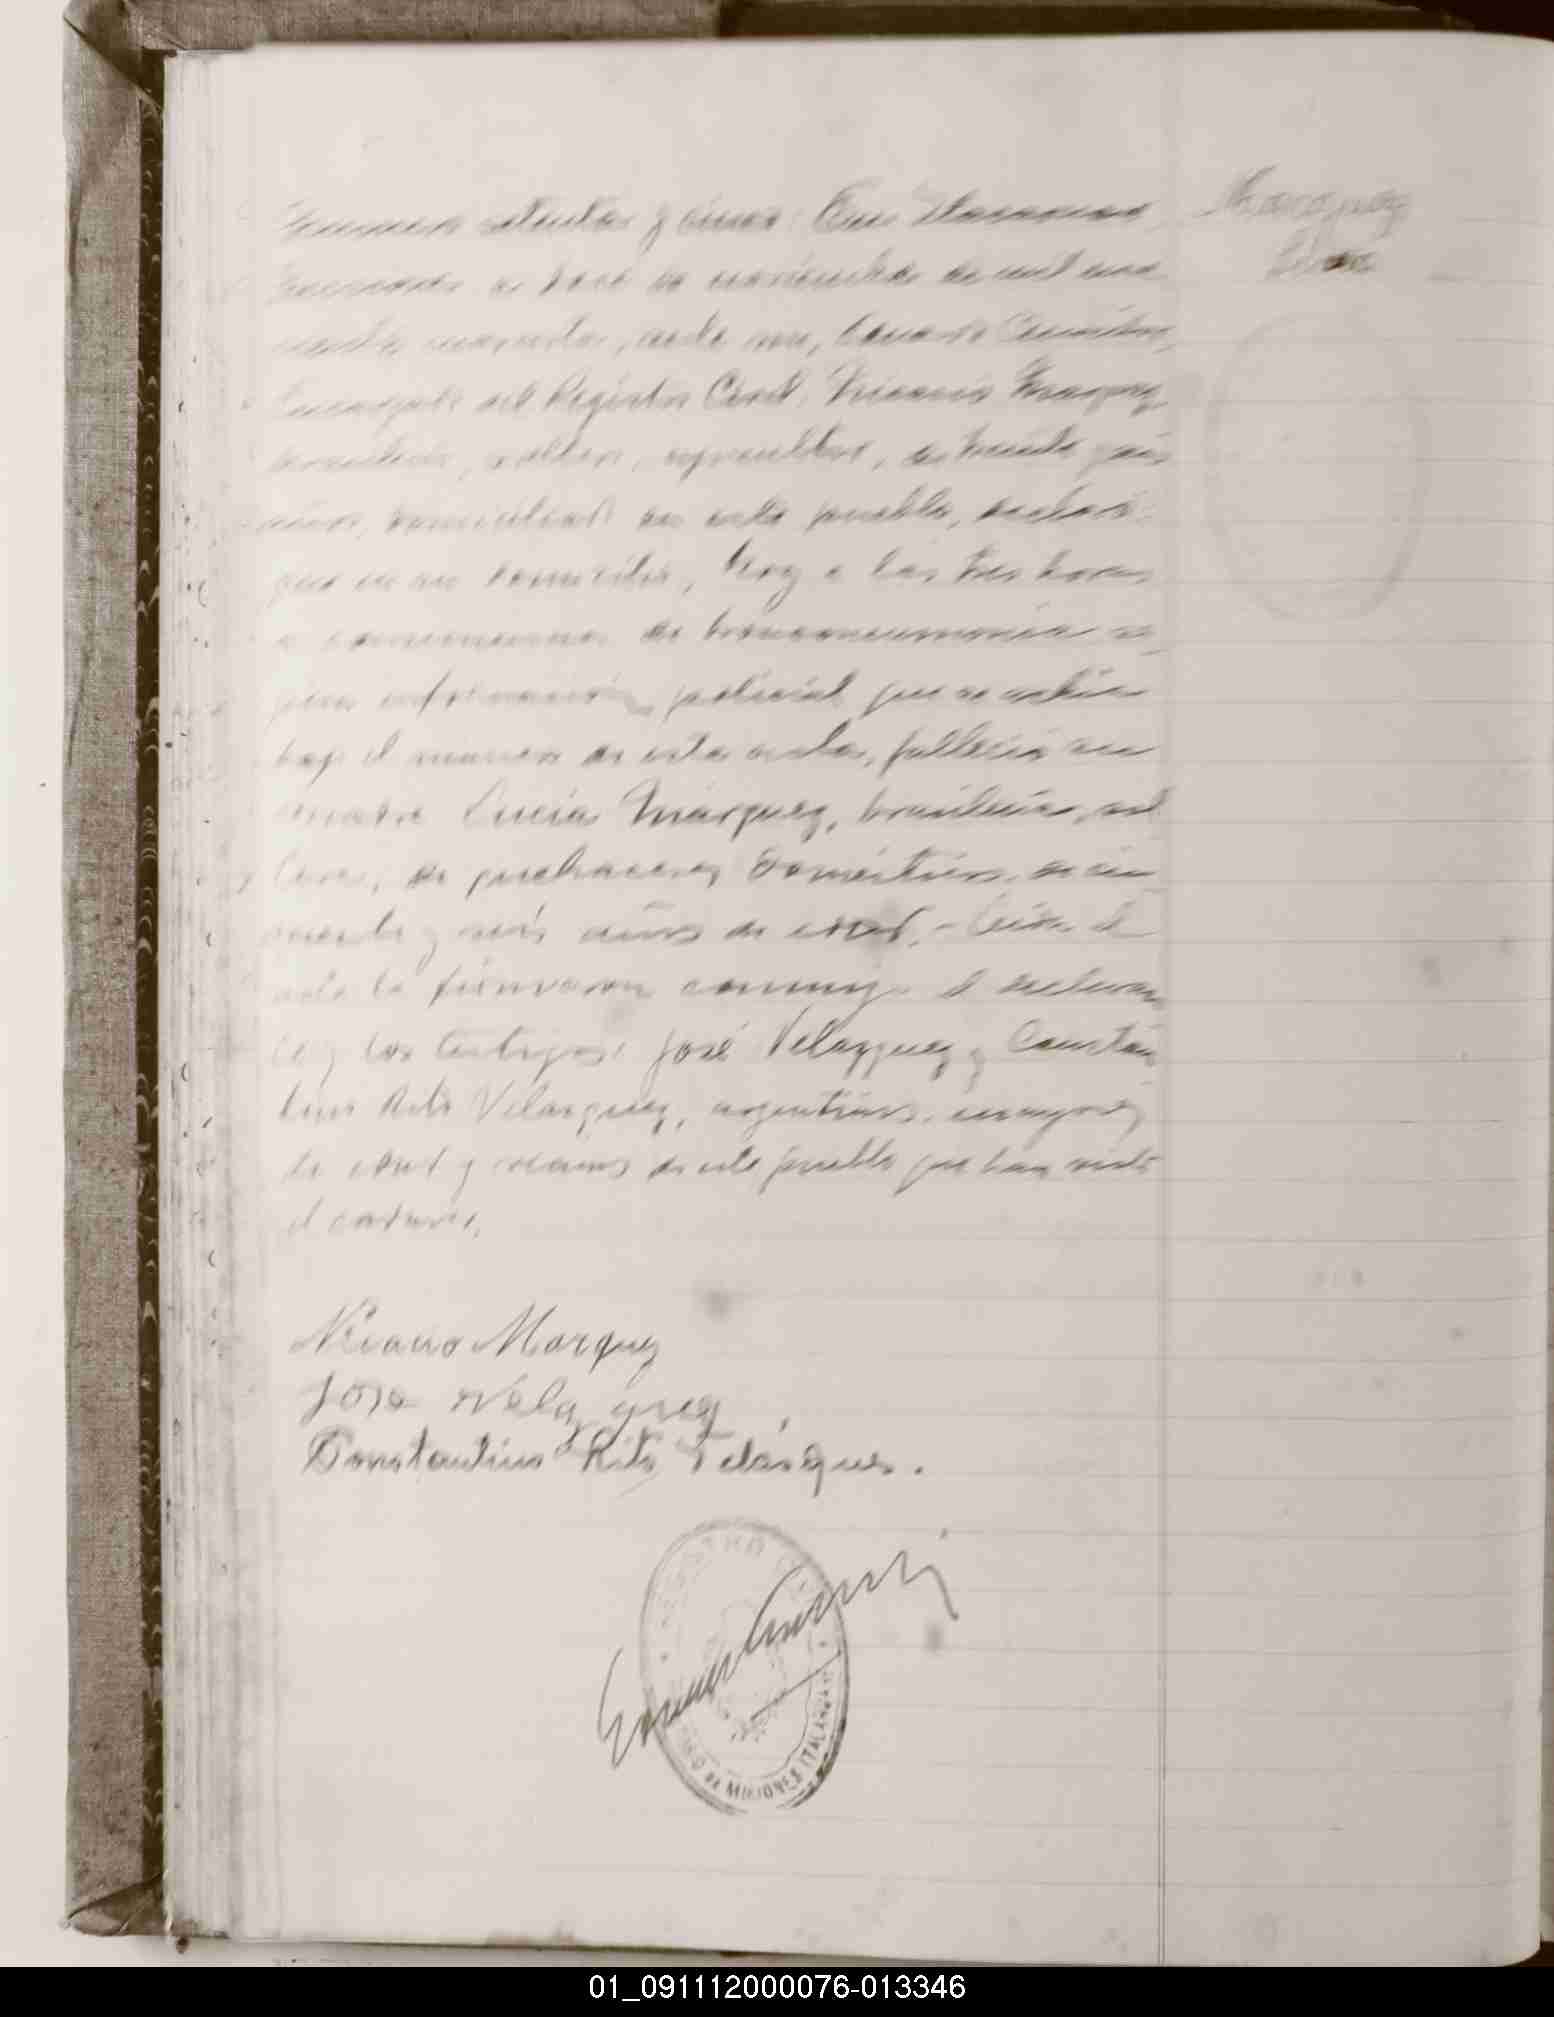 Número setenta y cinco. En
a doce de noviembre de mil nove
cientos cuarenta, ante mi,
Encargado del Registro Civil, Nicasio Marquez
brasilero, soltero, agricultor, de treinta y seis
años, domiciliado en este pueblo, declaró:
que en su domicilio, hoy a las tres horas
a consecuencia de bronconeumonía se
gún información policial que se archiva
bajo el número de esta acta, falleció su
madre Lucía Márquez, brasilera, sol
tera, de quehaceres domésticos, de cin
cuenta y seis años de edad.- Leída el
acta la firmaron conmigo el declaran
te y los testigos: José Velazquez y Constan
tino Rito Velazquez, argentinos, mayores
de edad y vecinos de este pueblo que han visto
el cadaver.
Marquez
Nicasio Marquez
Jose Velazquez
Constantino Rito Velásques.
REGISTRO
DE MISIONES ITACARUARÉ
01_091112000076-013346